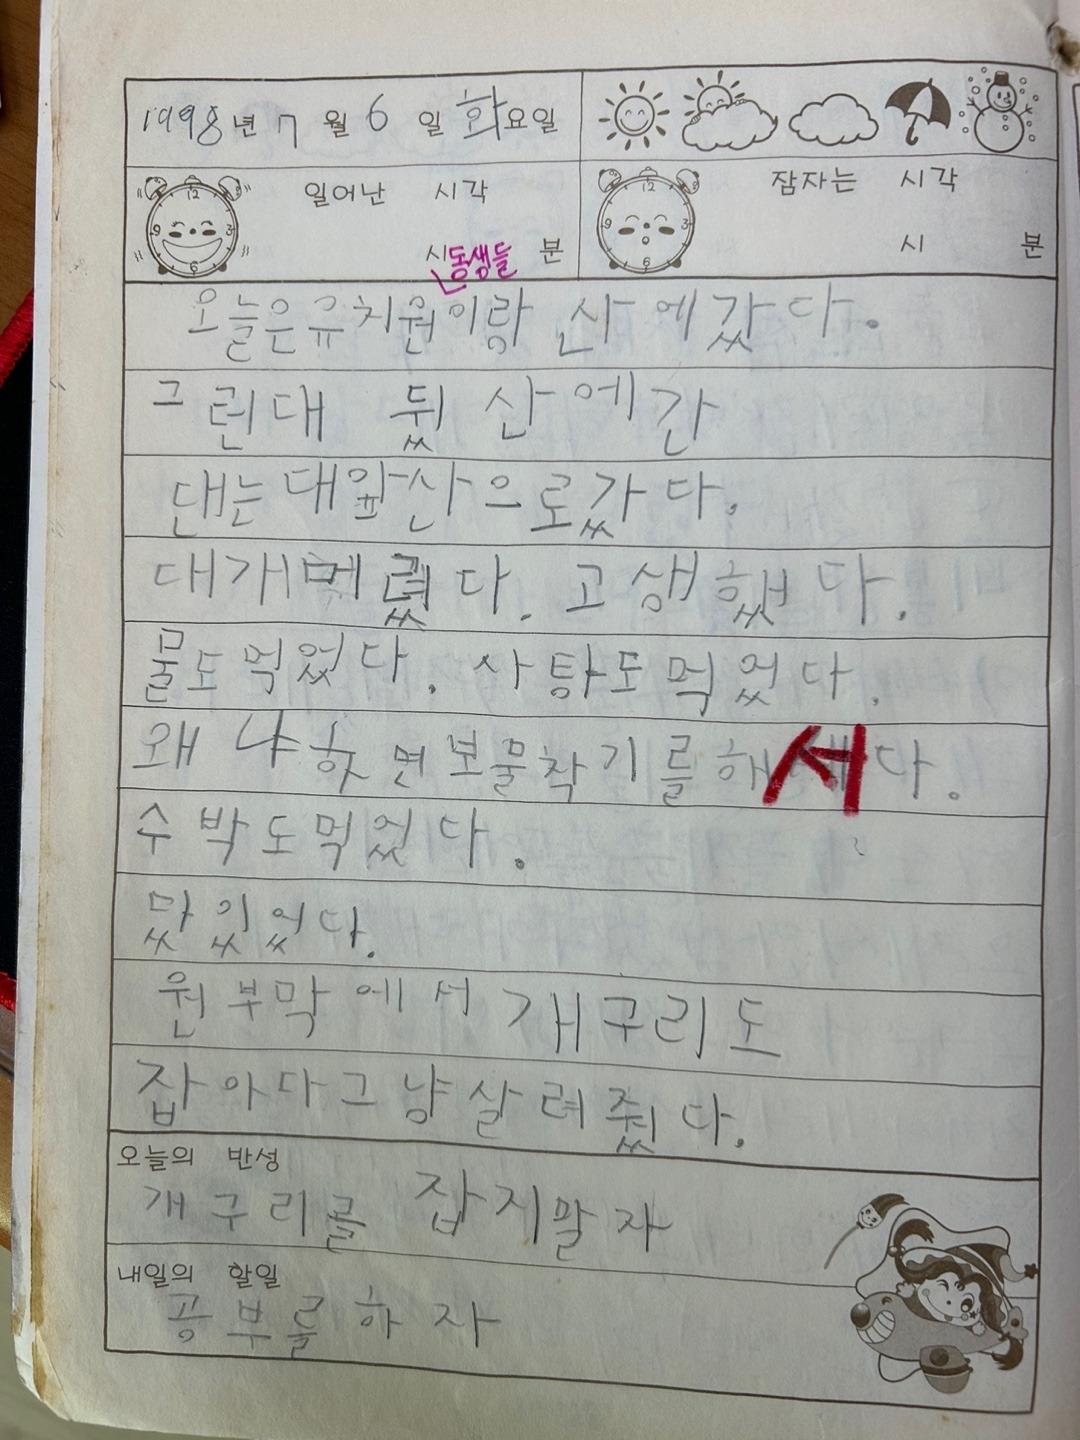 1998년 7월 6일 화요일
일어난 시각
시 분
잠자는 시각
시 분
동생들
오늘은유치원이랑 산에갔다.
그린대 뒸산에간
댄는대앞산으로갔다.
대개메렸다. 고생했다.
물도먹었다. 사탕도먹었다.
왜냐핫면보물착기를해서다.
수박도먹었다.
맜있었다.
원부막에서 개구리도
잡아다그냥살려줬다.
오늘의 반성
개구리를 잡지말자
내일의 할일
공부를하자